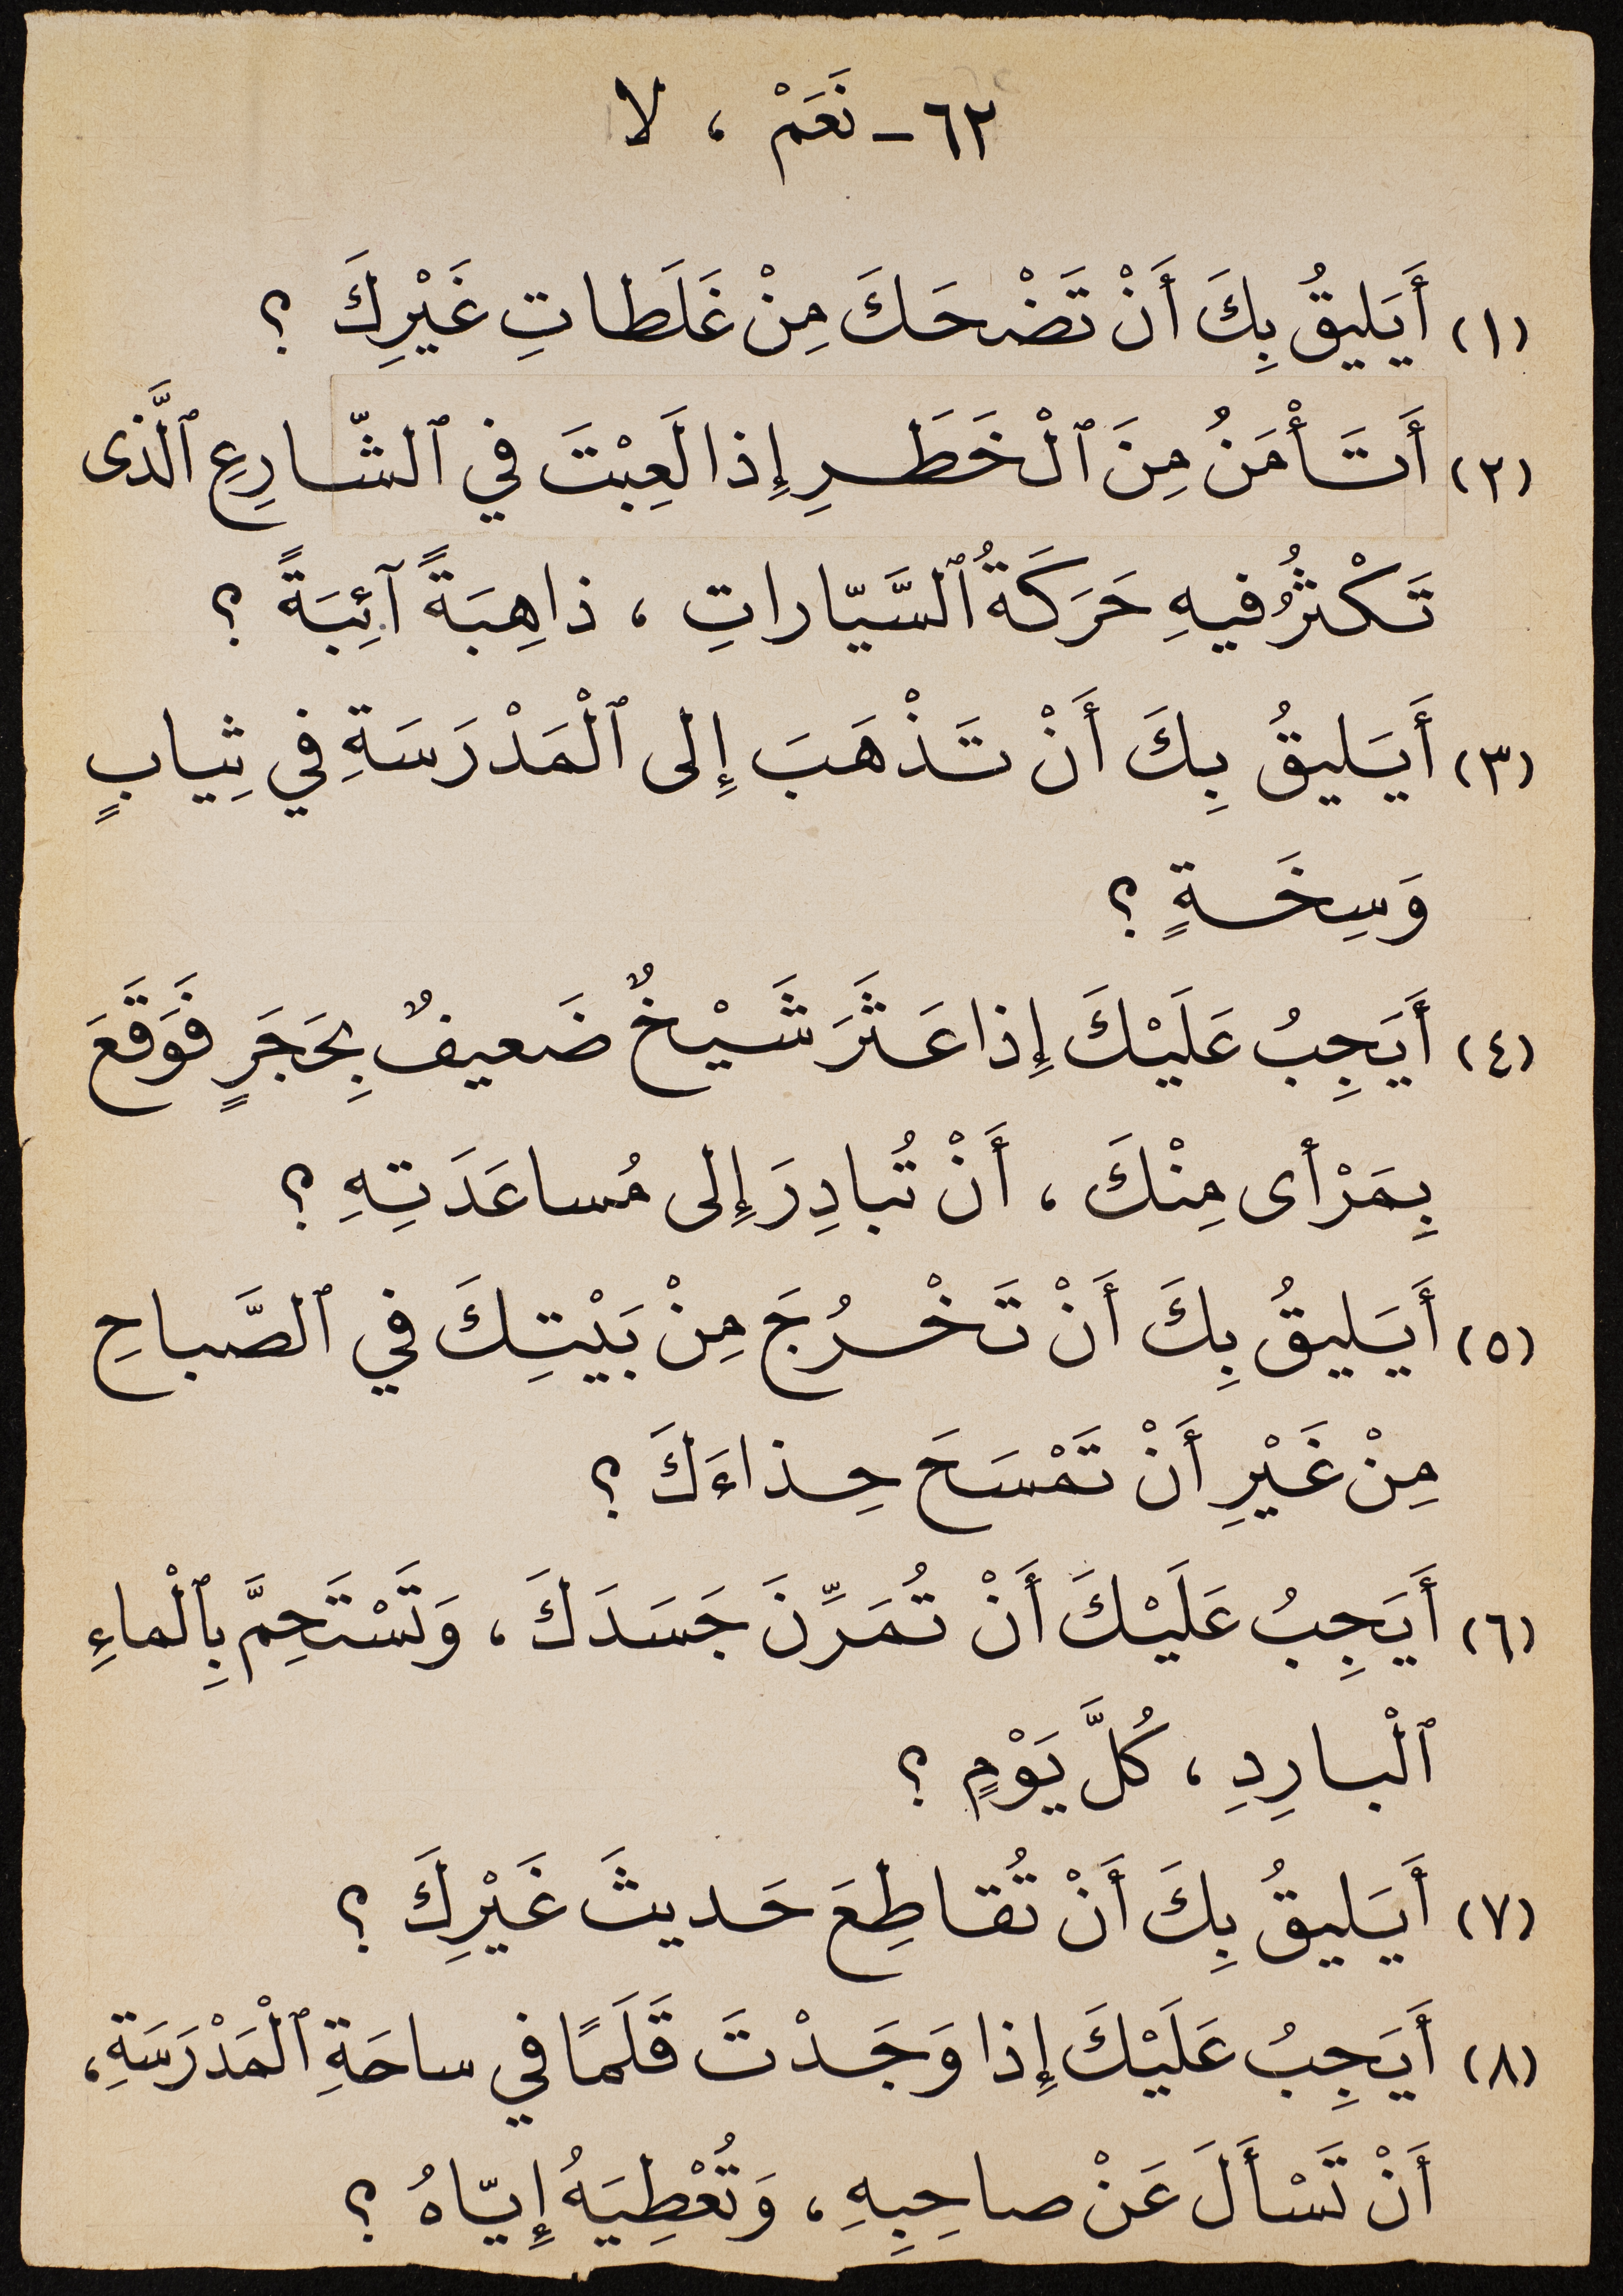 ٦٢- نَعَمْ ، لا
(١) أَيَليقُ بِكَ أَنْ تَضْحَكَ مِنْ غَلَطاتِ غَيْرِكَ ؟
(٢) أَتَأْمَنُ مِنَ ٱلْخَطَرِ إِذا لَعِبْتَ في ٱلشّارِعِ ٱلَّذى
تَكْثُرُ فيهِ حَرَكَةُ ٱلسَّيّاراتِ ، ذاهِبَةً آئِبَةً ؟
(٣) أَيَليقُ بِكَ أَنْ تَذْهَبَ إِلى ٱلْمَدْرَسَةِ في ثِيابٍ
وَسِخَةٍ ؟
(٤) أَيَجِبُ عَلَيْكَ إِذا عَثَرَ شَيْخٌ ضَعيفٌ بِحَجَرٍ فَوَقَعَ
بِمَرْأى مِنْكَ ، أَنْ تُبادِرَ إِلى مُساعَدَتِهِ ؟
(٥) أَيَليقُ بِكَ أَنْ تَخْرُجَ مِنْ بَيْتِكَ في ٱلصَّباحِ
مِنْ غَيْرِ أَنْ تَمْسَحَ حِذاءَكَ ؟
(٦) أَيَجِبُ عَلَيْكَ أَنْ تُمَرِّنَ جَسَدَكَ ، وَتَسْتَحِمَّ بِٱلْماءِ
ٱلْبارِدِ ، كُلَّ يَوْمٍ ؟
(٧) أَيَليقُ بِكَ أَنْ تُقاطِعَ حَديثَ غَيْرِكَ ؟
(٨) أَيَجِبُ عَلَيْكَ إِذا وَجَدْتَ قَلَمًا في ساحَةِ ٱلْمَدْرَسَةِ ،
أَنْ تَسْأَلَ عَنْ صاحِبِهِ ، وَتُعْطِيَهُ إِيّاهُ ؟